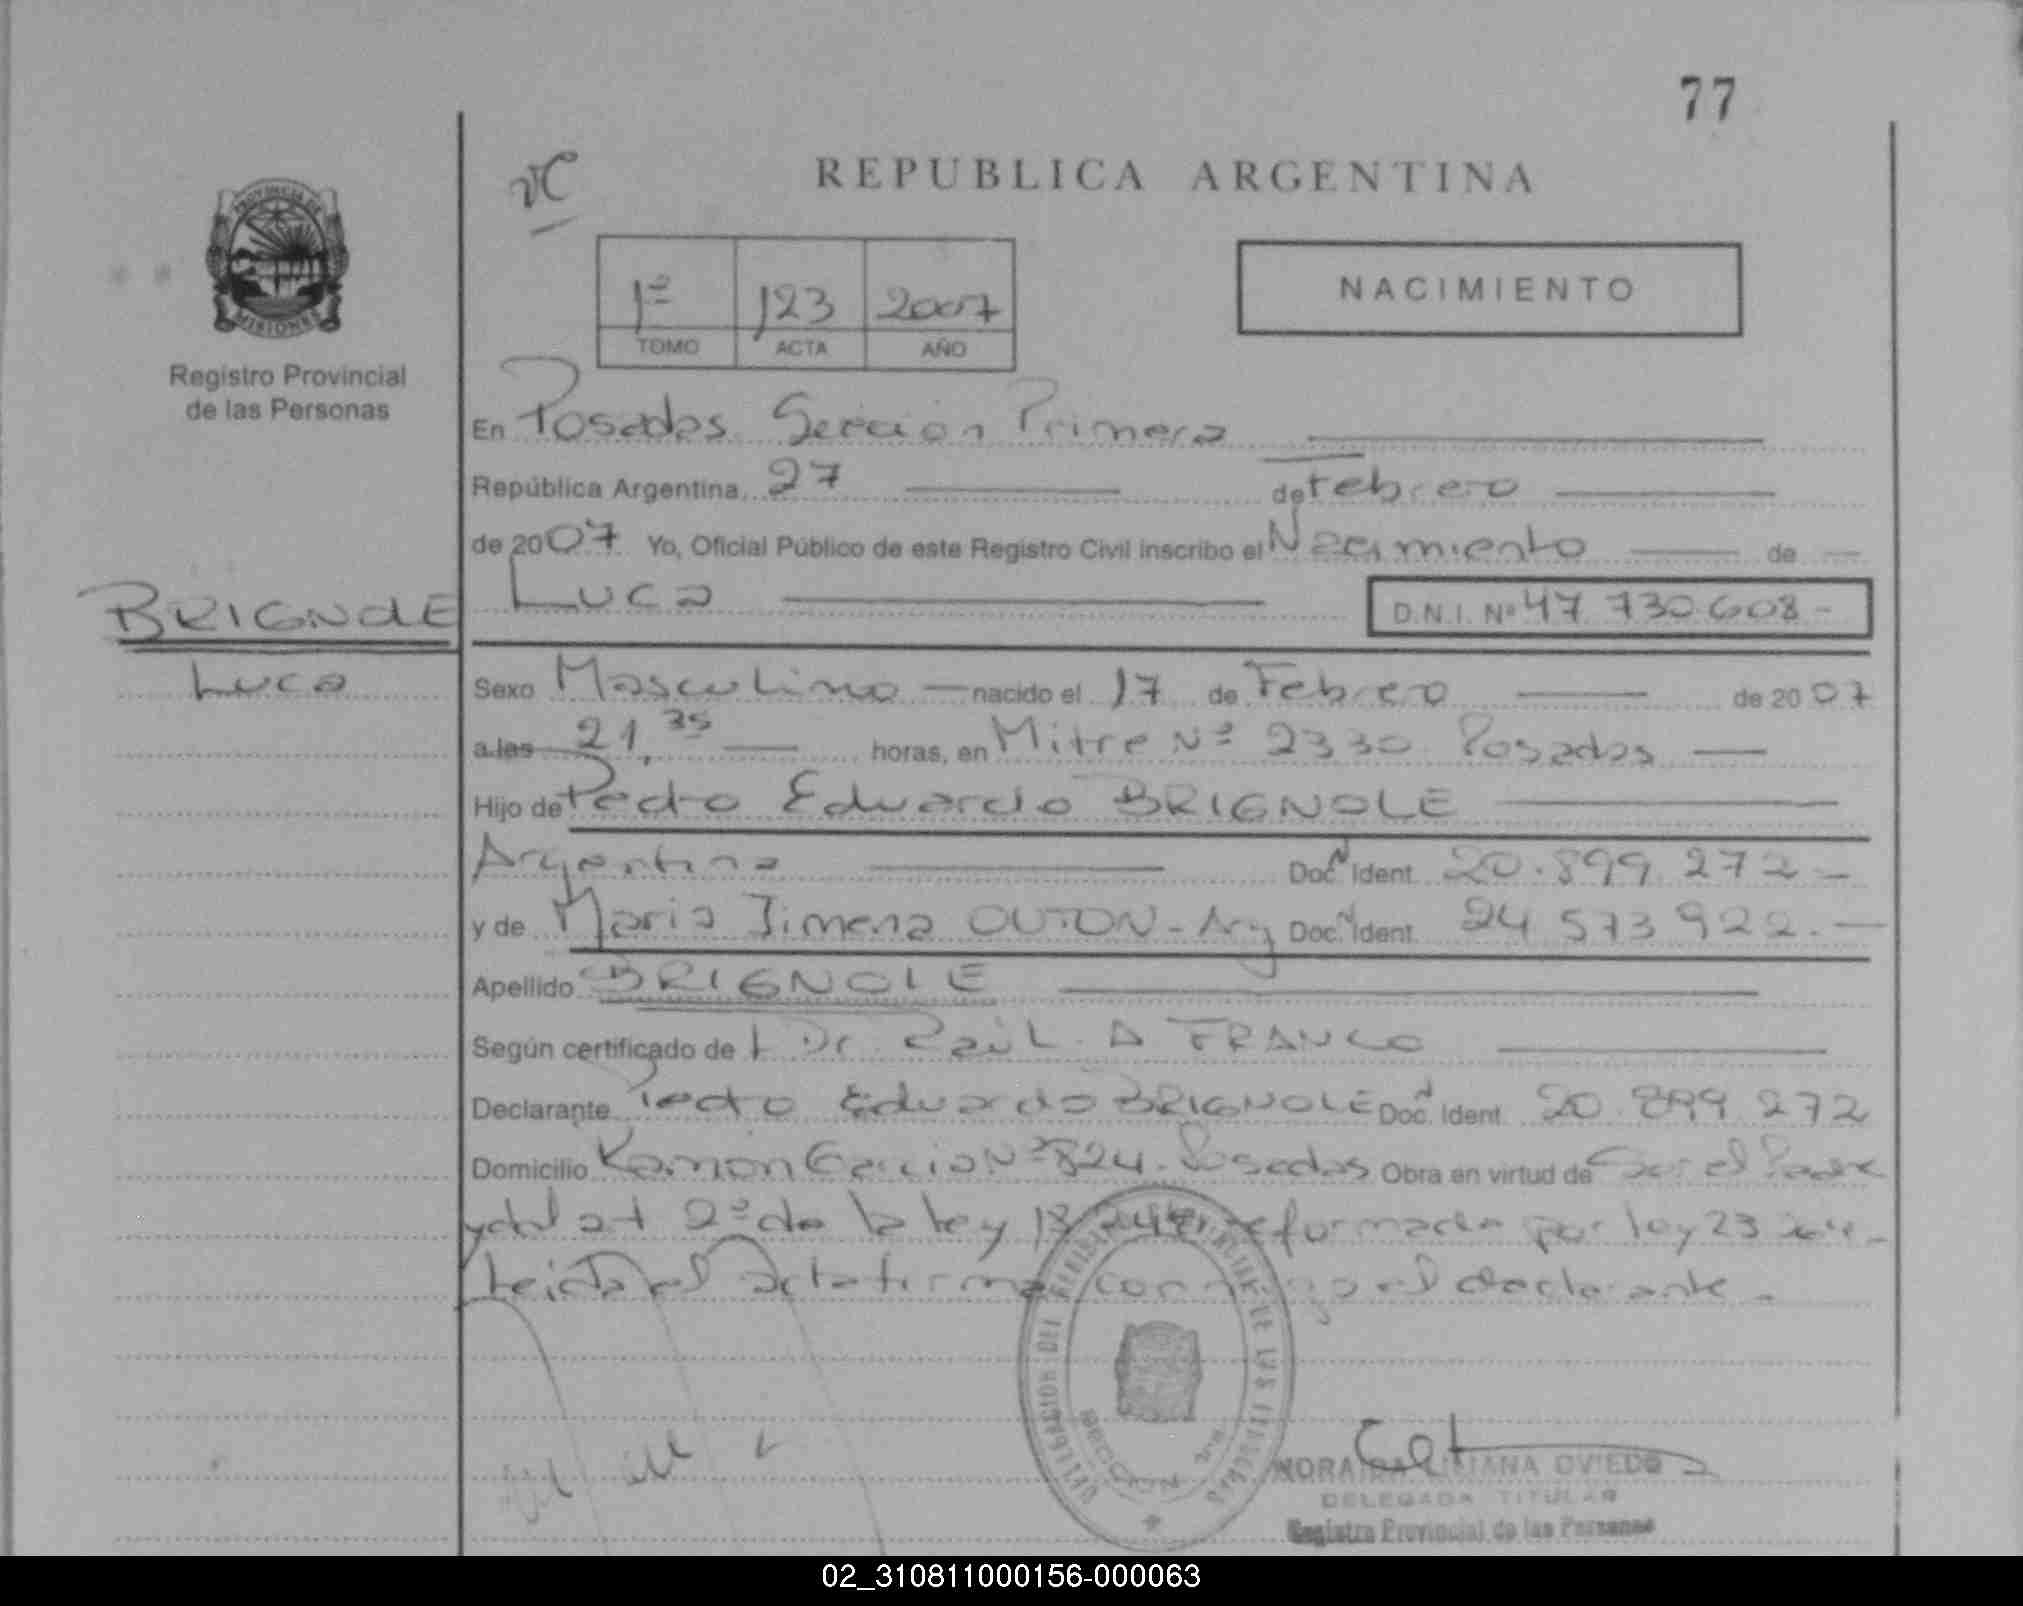 77
REPUBLICA ARGENTINA
PROVINCIA DE
MISIONES
Registro Provincial
de las Personas
1º 123 2007
TOMO ACTA AÑO
NACIMIENTO
En Posadas Sección Primera
República Argentina, 27 de Febrero
de 2007 Yo, Oficial Público de este Registro Civil inscribo el Nacimiento de
Luca D.N.I. Nº 47 730.608-
BRIGNOLE
Luca
Sexo Masculino nacido el 17 de Febrero de 2007
a las 21,35 horas, en Mitre Nº 2330 Posadas
Hijo de Pedro Eduardo BRIGNOLE
Argentina Doc. Ident. 20.899.272-
y de Maria Jimena OUTON - Arg Doc. Ident. 24 573 922.-
Apellido BRIGNOLE
Según certificado de Dr. Raúl A FRANCO
Declarante Pedro Eduardo BRIGNOLE Doc. Ident. 20.899.272
Domicilio Ramón García Nº 824. Posadas Obra en virtud de Ser el Padre
y del art 2º de la ley reformada por ley 23
Leida el acta firma conmigo el declarante.
SECCION
LILIANA OVIEDO
DELEGADA TITULAR
Registro Provincial de las Personas
02_310811000156-000063